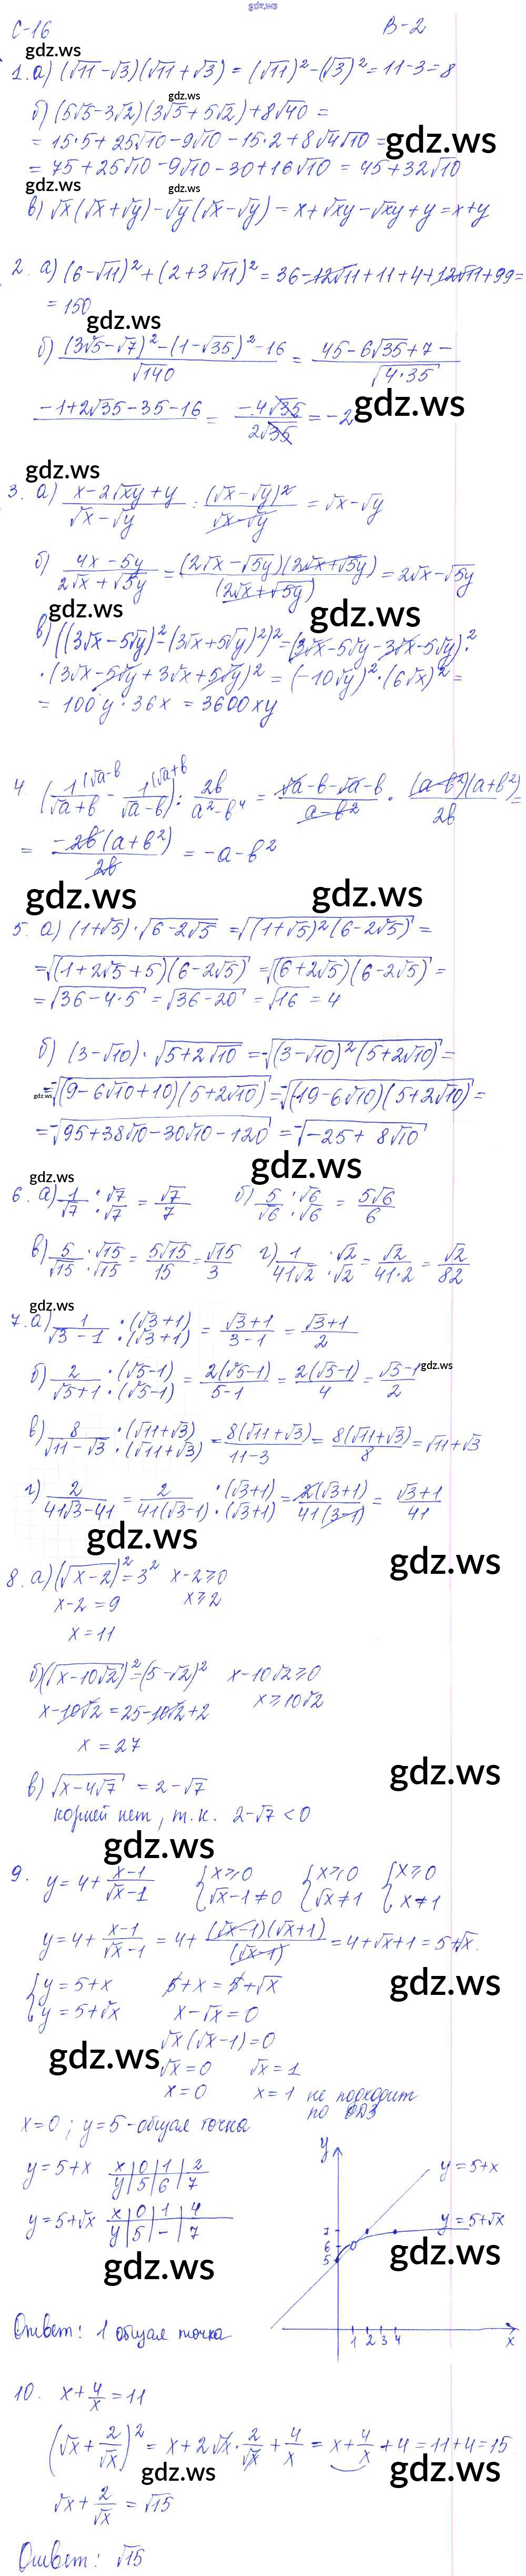 gdz.ws
С-16 В-2
gdz.ws
1. а) (√11 - √3)(√11 + √3) = (√11)² - (√3)² = 11 - 3 = 8
gdz.ws
б) (5√5 - 3√2)(3√5 + 5√2) + 8√40 =
= 15·5 + 25√10 - 9√10 - 15·2 + 8√4√10 =
gdz.ws gdz.ws
= 75 + 25√10 - 9√10 - 30 + 16√10 = 45 + 32√10
gdz.ws gdz.ws
в) √x(√x + √y) - √y(√x - √y) = x + √xy - √xy + y = x + y
2. а) (6 - √11)² + (2 + 3√11)² = 36 - 12√11 + 11 + 4 + 12√11 + 99 =
= 150
gdz.ws
б) ((3√5 - √7)² - (1 - √35)² - 16)/√140 = (45 - 6√35 + 7 -
- 1 + 2√35 - 35 - 16)/√(4·35) = -4√35/2√35 = -2
gdz.ws
gdz.ws
3. а) (x - 2√xy + y)/(√x - √y) = (√x - √y)²/(√x - √y) = √x - √y
б) (4x - 5y)/(2√x + √5y) = (2√x - √5y)(2√x + √5y)/(2√x + √5y) = 2√x - √5y
gdz.ws gdz.ws
в) ((3√x - 5√y)² - (3√x + 5√y)²)² = (3√x - 5√y - 3√x - 5√y)² ·
· (3√x - 5√y + 3√x + 5√y)² = (-10√y)² · (6√x)² =
= 100y · 36x = 3600xy
4. (1^(√a-b/(√a + b) - 1^(√a+b/(√a - b)) : 2b/(a² - b⁴) = (√a - b - √a - b)/(a - b²) · (a - b²)(a + b²)/2b =
= -2b(a + b²)/2b = -a - b²
gdz.ws gdz.ws
5. а) (1 + √5) · √(6 - 2√5) = √((1 + √5)²(6 - 2√5)) =
= √((1 + 2√5 + 5)(6 - 2√5)) = √((6 + 2√5)(6 - 2√5)) =
= √(36 - 4·5) = √(36 - 20) = √16 = 4
б) (3 - √10) · √(5 + 2√10) = -√((3 - √10)²(5 + 2√10)) =
gdz.ws
= -√((9 - 6√10 + 10)(5 + 2√10)) = -√((19 - 6√10)(5 + 2√10)) =
= -√(95 + 38√10 - 30√10 - 120) = -√(-25 + 8√10)
gdz.ws
gdz.ws
6. а) 1/√7 ·√7/·√7 = √7/7 б) 5/√6 ·√6/·√6 = 5√6/6
в) 5/√15 ·√15/·√15 = 5√15/15 = √15/3 г) 1/41√2 ·√2/·√2 = √2/41·2 = √2/82
gdz.ws
7. а) 1/(√3 - 1) ·(√3 + 1)/·(√3 + 1) = (√3 + 1)/(3 - 1) = (√3 + 1)/2
б) 2/(√5 + 1) ·(√5 - 1)/·(√5 - 1) = 2(√5 - 1)/(5 - 1) = 2(√5 - 1)/4 = (√5 - 1)/2
gdz.ws
в) 8/(√11 - √3) ·(√11 + √3)/·(√11 + √3) = 8(√11 + √3)/(11 - 3) = 8(√11 + √3)/8 = √11 + √3
г) 2/(41√3 - 41) = 2/41(√3 - 1) ·(√3 + 1)/·(√3 + 1) = 2(√3 + 1)/41(3 - 1) = (√3 + 1)/41
gdz.ws
gdz.ws
8. а) (√(x - 2))² = 3² x - 2 ≥ 0
x - 2 = 9 x ≥ 2
x = 11
б) (√(x - 10√2))² = (5 - √2)² x - 10√2 ≥ 0
x - 10√2 = 25 - 10√2 + 2 x ≥ 10√2
x = 27
gdz.ws
в) √(x - 4√7) = 2 - √7
корней нет, т.к. 2 - √7 < 0
gdz.ws
9. y = 4 + (x - 1)/(√x - 1) {x ≥ 0 √x - 1 ≠ 0 {x ≥ 0 √x ≠ 1 {x ≥ 0 x ≠ 1
y = 4 + (x - 1)/(√x - 1) = 4 + (√x - 1)(√x + 1)/(√x - 1) = 4 + √x + 1 = 5 + √x.
gdz.ws
{y = 5 + x 5 + x = 5 + √x
y = 5 + √x x - √x = 0
√x(√x - 1) = 0
gdz.ws
√x = 0 √x = 1
x = 0 x = 1 не подходит
по ОДЗ
x = 0; y = 5 - общая точка
y = 5 + x x | 0 | 1 | 2
y | 5 | 6 | 7
y = 5 + √x x | 0 | 1 | 4
y | 5 | - | 7
y
y = 5 + x
y = 5 + √x
7
6
5
1 2 3 4 x
gdz.ws
gdz.ws
Ответ: 1 общая точка
10. x + 4/x = 11
(√x + 2/√x)² = x + 2√x · 2/√x + 4/x = x + 4/x + 4 = 11 + 4 = 15
gdz.ws gdz.ws
√x + 2/√x = √15
Ответ: √15